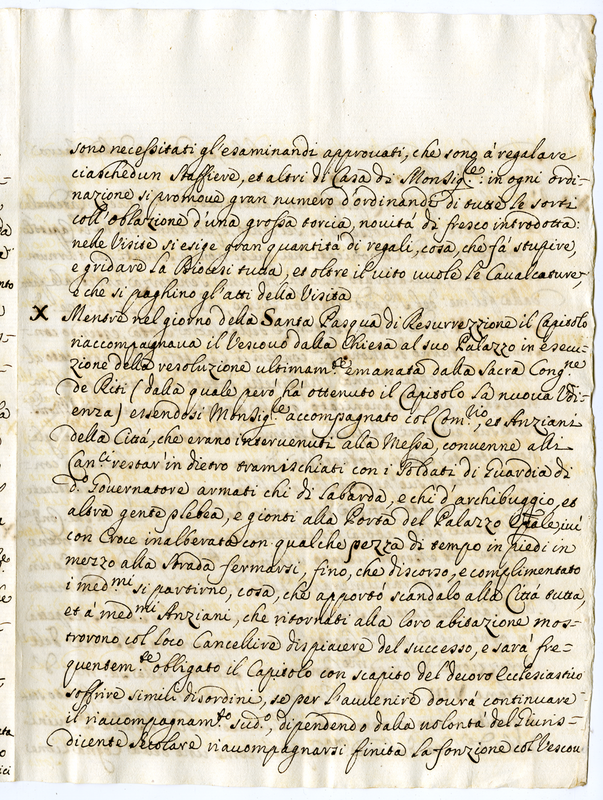 sono necessitati gl'esaminandi approuati, che sono à regalare
ciaschedun Staffiere, et altri di Casa di Monsig.re: in ogni ordi-
nazione si promoue gran numero d'ordinandi di tutte le sorti
coll'oblazione d'una grossa torcia, nouità di fresco introdotta:
nelle Visite si esige gran quantità di regali, cosa, che fà stupire,
e gridare la Diocesi tutta, et oltre il vito vuole le Caualcature,
e che si paghino gl'atti della Visita
X Mentre nel giorno della Santa Pasqua di Resurrezzione il Capitolo
riaccompagnaua il Vescouo dalla Chiesa al suo Palazzo in esecu-
zione della resoluzione ultimam.te emanata dalla Sacra Cong.ne
de Riti (dalla quale però hà ottenuto il Capitolo la nuoua Vdi-
enza) essendosi Monsig.re accompagnato col Com.rio, et Anziani
della Città, che erano intervenuti alla Messa, conuenne alli
Can.ci restar'in dietro tramischiati con i Soldati di Guardia di
d.o Gouernatore armati chi di labarda, e chi d'archibuggio, et
altra gente plebea, e gionti alla Porta del Palazzo iui
con Croce inalberata con qualche pezza di tempo in piedi in
mezzo alla strada fermarsi, fino, che discorso, e complimentato
i med.mi si partirno, cosa, che apportò scandalo alla Città tutta,
et à med.mi Anziani, che ritornati alla loro abitazione mos-
trorono col loco Cancelliere dispiacere del successo, e sarà fre-
quentem.te obligato il Capitolo con scapito del decoro Ecclesiastico
soffrire simili disordini, se per l'auuenire dourà continuare
il riaccompagnam.to sud.o, dipendendo dalla volontà del Giuris-
dicente Secolare riaccompagnarsi finita la fonzione col Vescou